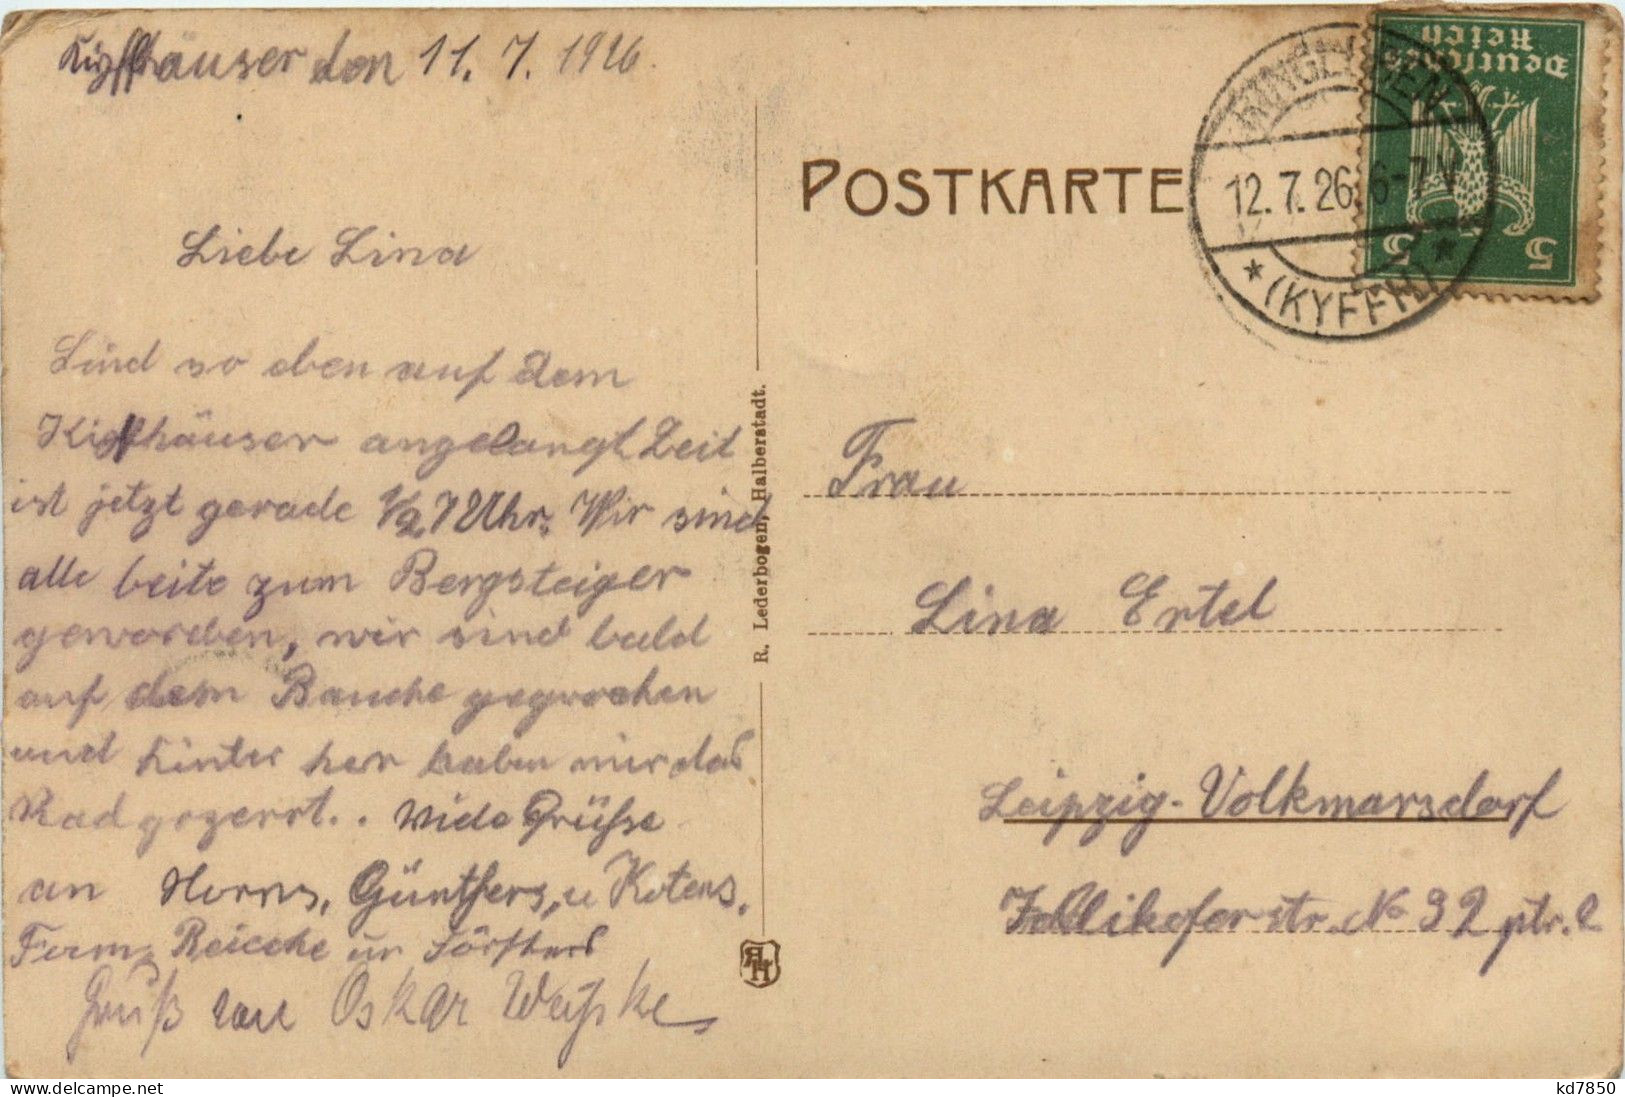 Kypffhäuser den 11. 7. 1926.
Liebe Lina
Sind so eben auf dem
Kipffhäuser angelangt Zeit
ist jetzt gerade 1/2 7 Uhr. Wir sind
alle beite zum Bergsteiger
geworden, wir sind bald
auf dem Bauche gegrochen
und hinter her haben wir das
Rad gezerrt.. Wide Grüsse
an Horns, Günthers, u Koters,
Fam. Reicche un
Gruß von Oskar
POSTKARTE
R. Lederbogen, Halberstadt.
RLH
Deutsches
Reich
5 5
RINGLEBEN
12.7.26. 6-7 V
* (KYFFH) *
Frau
Lina Ertel
Leipzig-Volkmarsdorf
str. No 32 ptr. l
kd7850